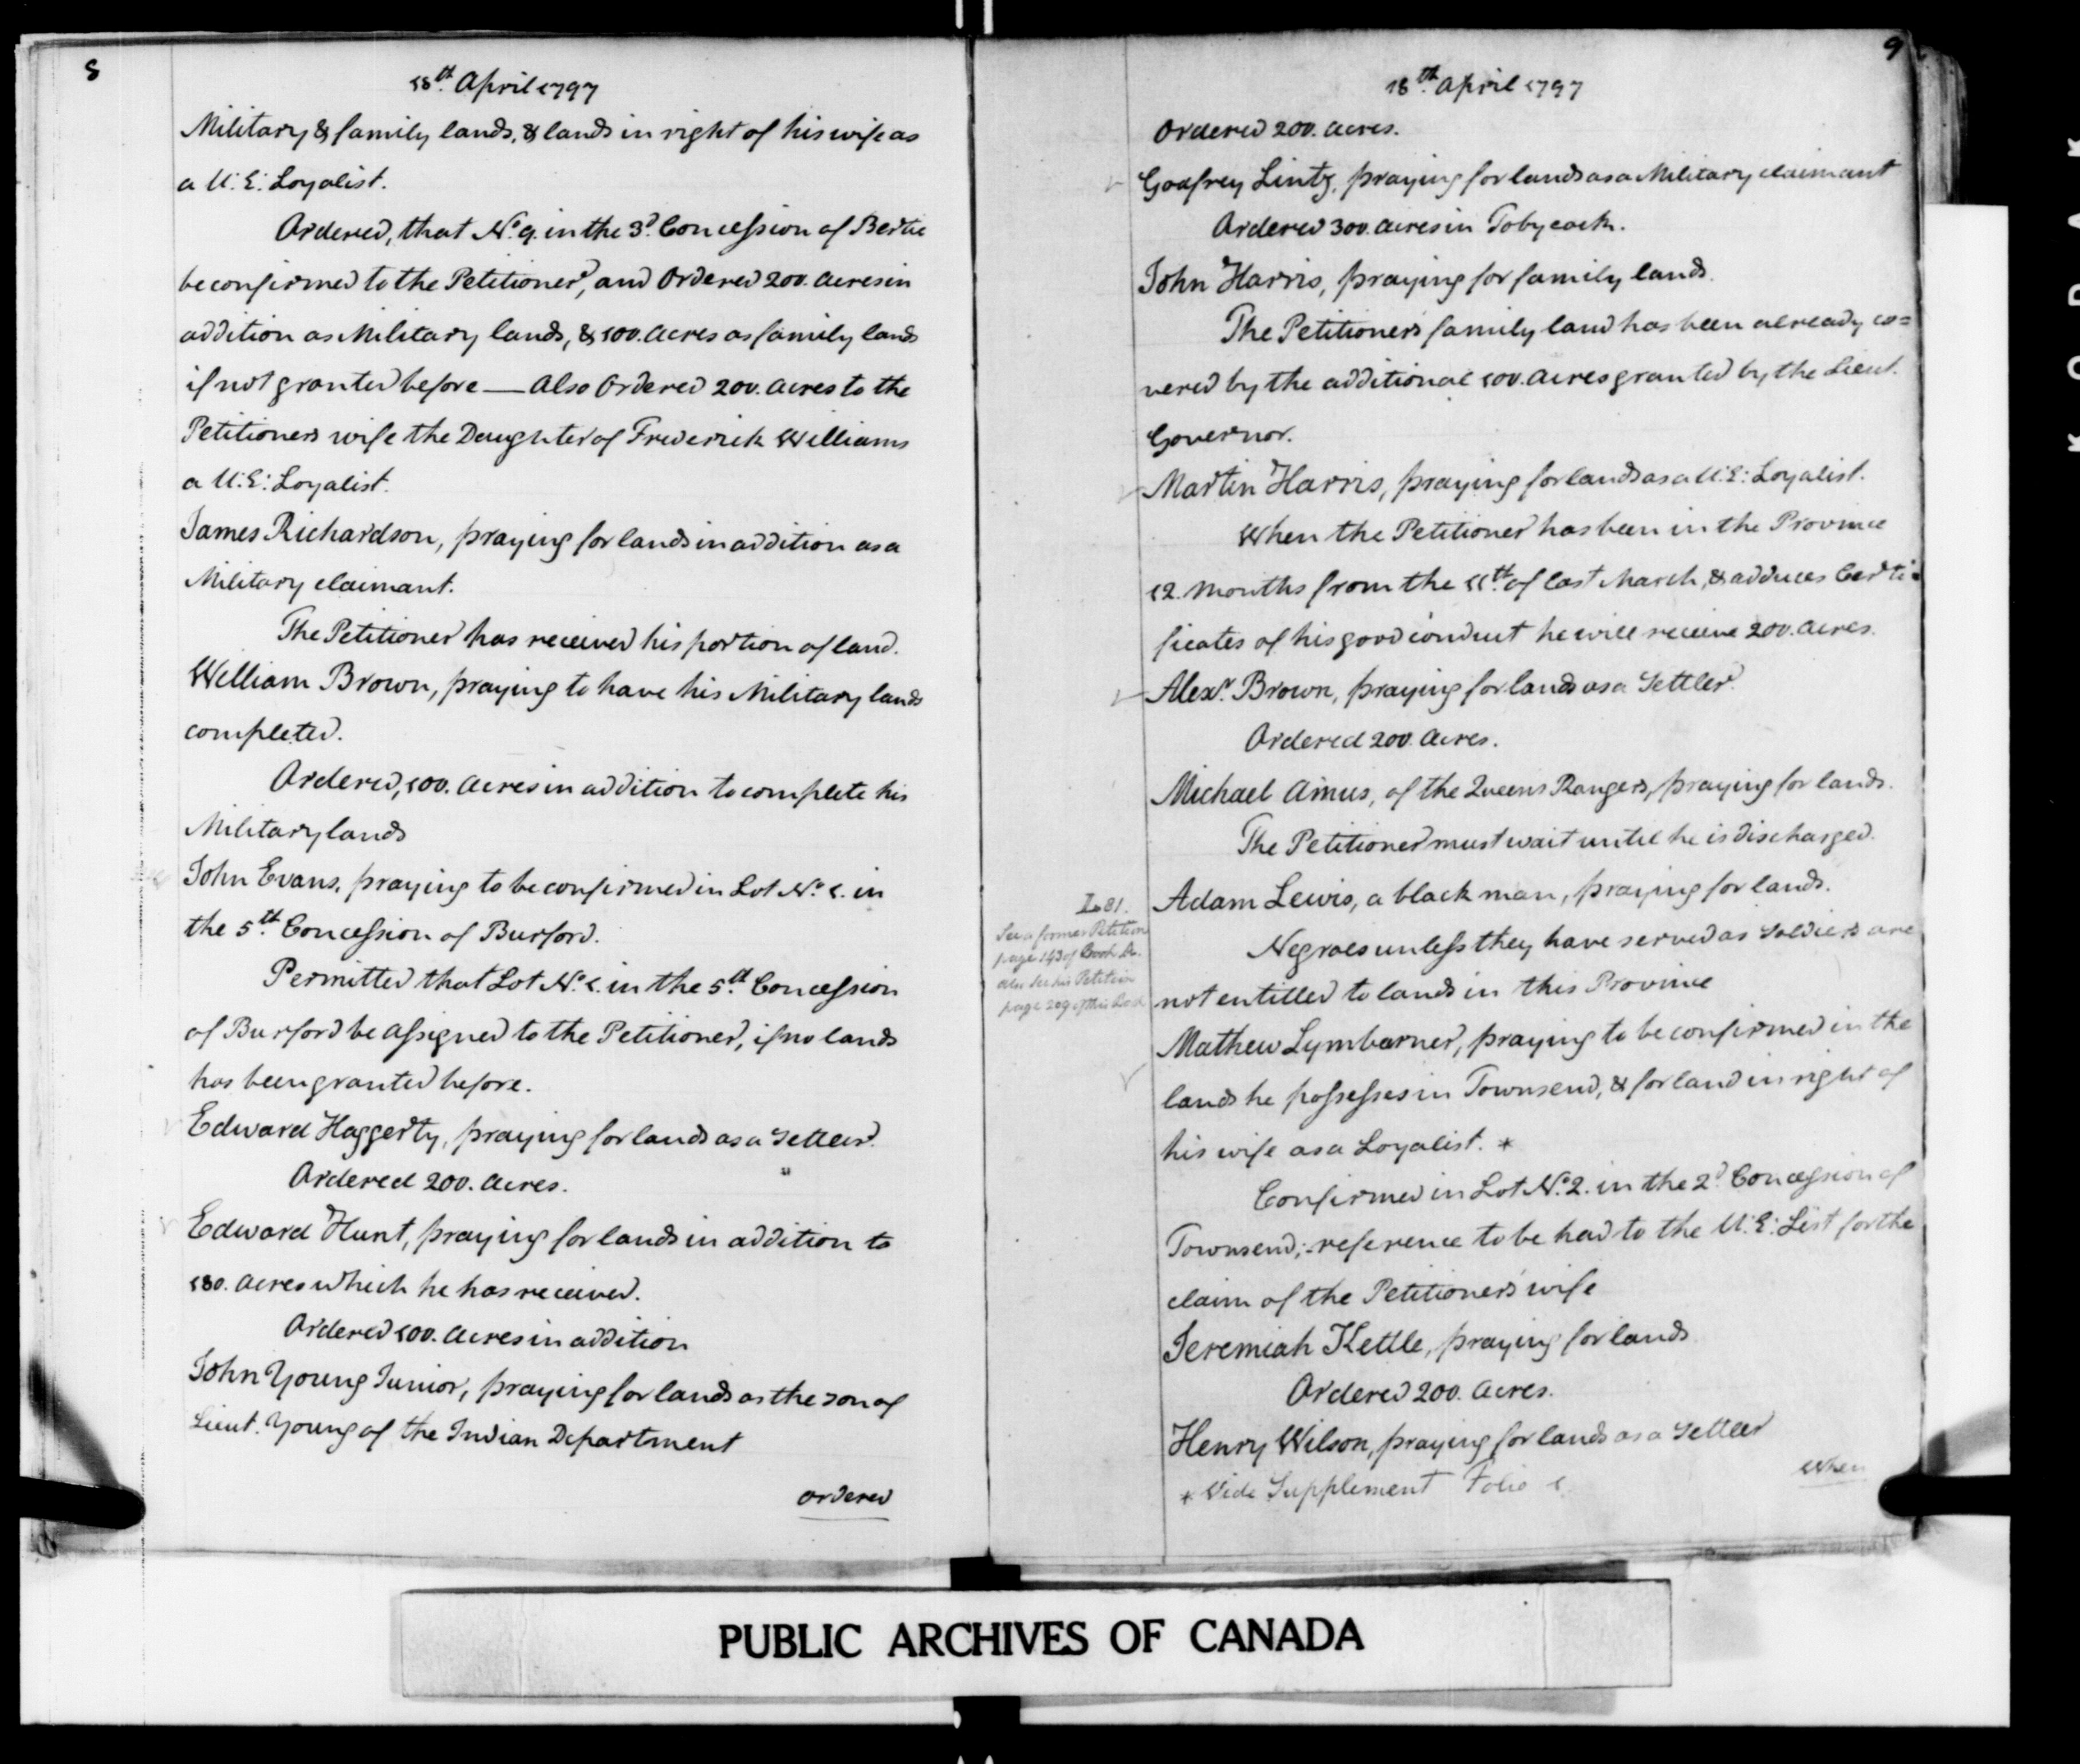 8
18th. April 1797
Military & family lands, & lands in right of his wife as
a U: E: Loyalist.
Ordered, that No. 9. in the 3d. Concession of Bertie
be confirmed to the Petitioner, and Ordered 200. Acres in
addition as Military lands, & 100. Acres as family lands
if not granted before — Also Ordered 200. Acres to the
Petitioners wife the Daughter of Frederick Williams
a U: E: Loyalist.
James Richardson, praying for lands in addition as a
Military claimant.
The Petitioner has received his portion of land.
William Brown, praying to have his Military lands
completed.
Ordered, 100. Acres in addition to complete his
Military lands
John Evans, praying to be confirmed in Lot No. 1. in
the 5th. Concession of Burford.
Permitted that Lot No. 1. in the 5th. Concession
of Burford be Assigned to the Petitioner, if no lands
has been granted before.
Edward Haggerty, praying for lands as a Settler.
Ordered 200. Acres.
Edward Hunt, praying for lands in addition to
180. Acres which he has received.
Ordered 100. Acres in addition
John Young Junior, praying for lands as the son of
Lieut. Young of the Indian Department
ordered
9
18th. April 1797
Ordered 200. Acres.
Godfrey Lintz, praying for lands as a Military claimant
Ordered 300. Acres in Tobycoch.
John Harris, praying for family lands.
The Petitioner's family land has been already co=
vered by the additional 100. Acres granted by the Lieut.
Governor.
Martin Harris, praying for lands as a U: E: Loyalist.
When the Petitioner has been in the Province
12. Months from the 11th. of last March, & adduces Certi=
ficates of his good conduct he will receive 200. Acres.
Alexr. Brown, praying for lands as a Settler.
Ordered 200. Acres.
Michael Aimus, of the Queens Rangers, praying for lands.
The Petitioner must wait until he is discharged.
L 81.
See a former Petition
page 143 of Book A.
also see his Petition
page 209 of this Book
Adam Lewis, a black man, praying for lands.
Negroes unless they have served as Soldiers are
not entitled to lands in this Province
Mathew Lymbarner, praying to be confirmed in the
lands he possesses in Townsend, & for land in right of
his wife as a Loyalist. *
Confirmed in Lot No. 2. in the 2d. Concession of
Townsend; reference to be had to the U: E: List for the
claim of the Petitioners wife
Jeremiah Kettle, praying for lands
Ordered 200. Acres.
Henry Wilson, praying for lands as a Settler
When
* Vide Supplement Folio 1.
PUBLIC ARCHIVES OF CANADA